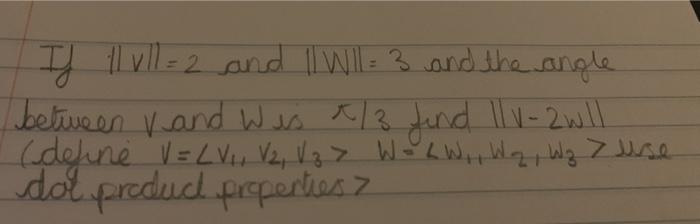 If ||v|| = 2 and ||W|| = 3 and the angle
between v and W is π/3 find ||v-2w||
(define V = <V₁, V₂, V₃> W = <W₁, W₂, W₃> use
dot product properties>